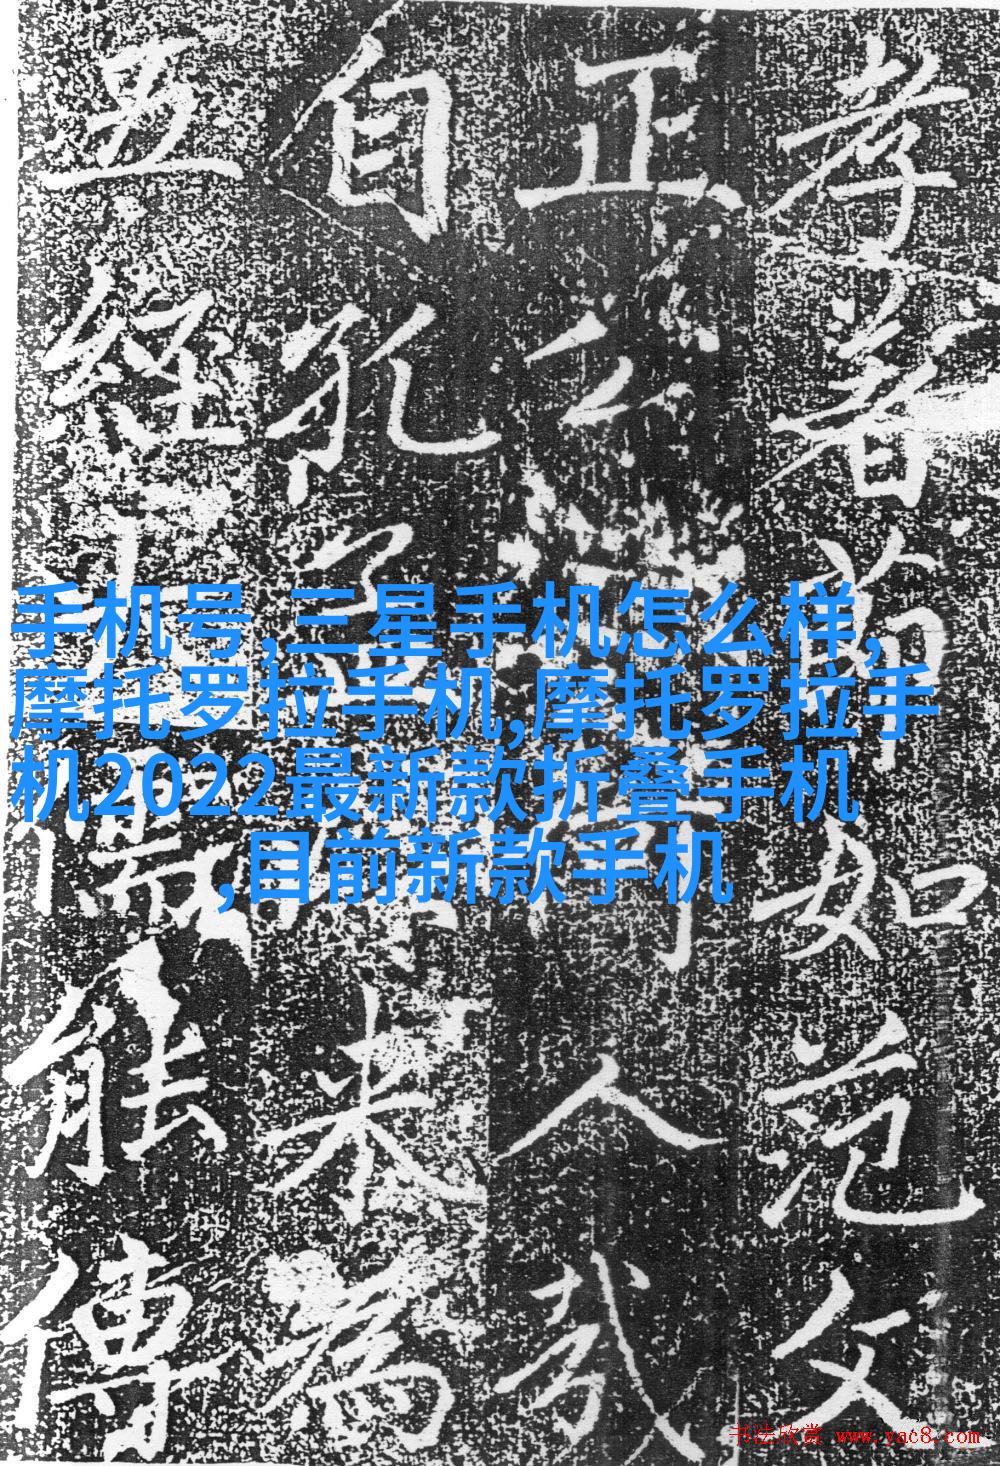 手机号,三星手机怎么样,
摩托罗拉手机,摩托罗拉手
机2022最新款折叠手机
,目前新款手机
前如范文
正公人哉
自孔孟来為
五經大儒能傳
书法欣赏 www.yac8.com